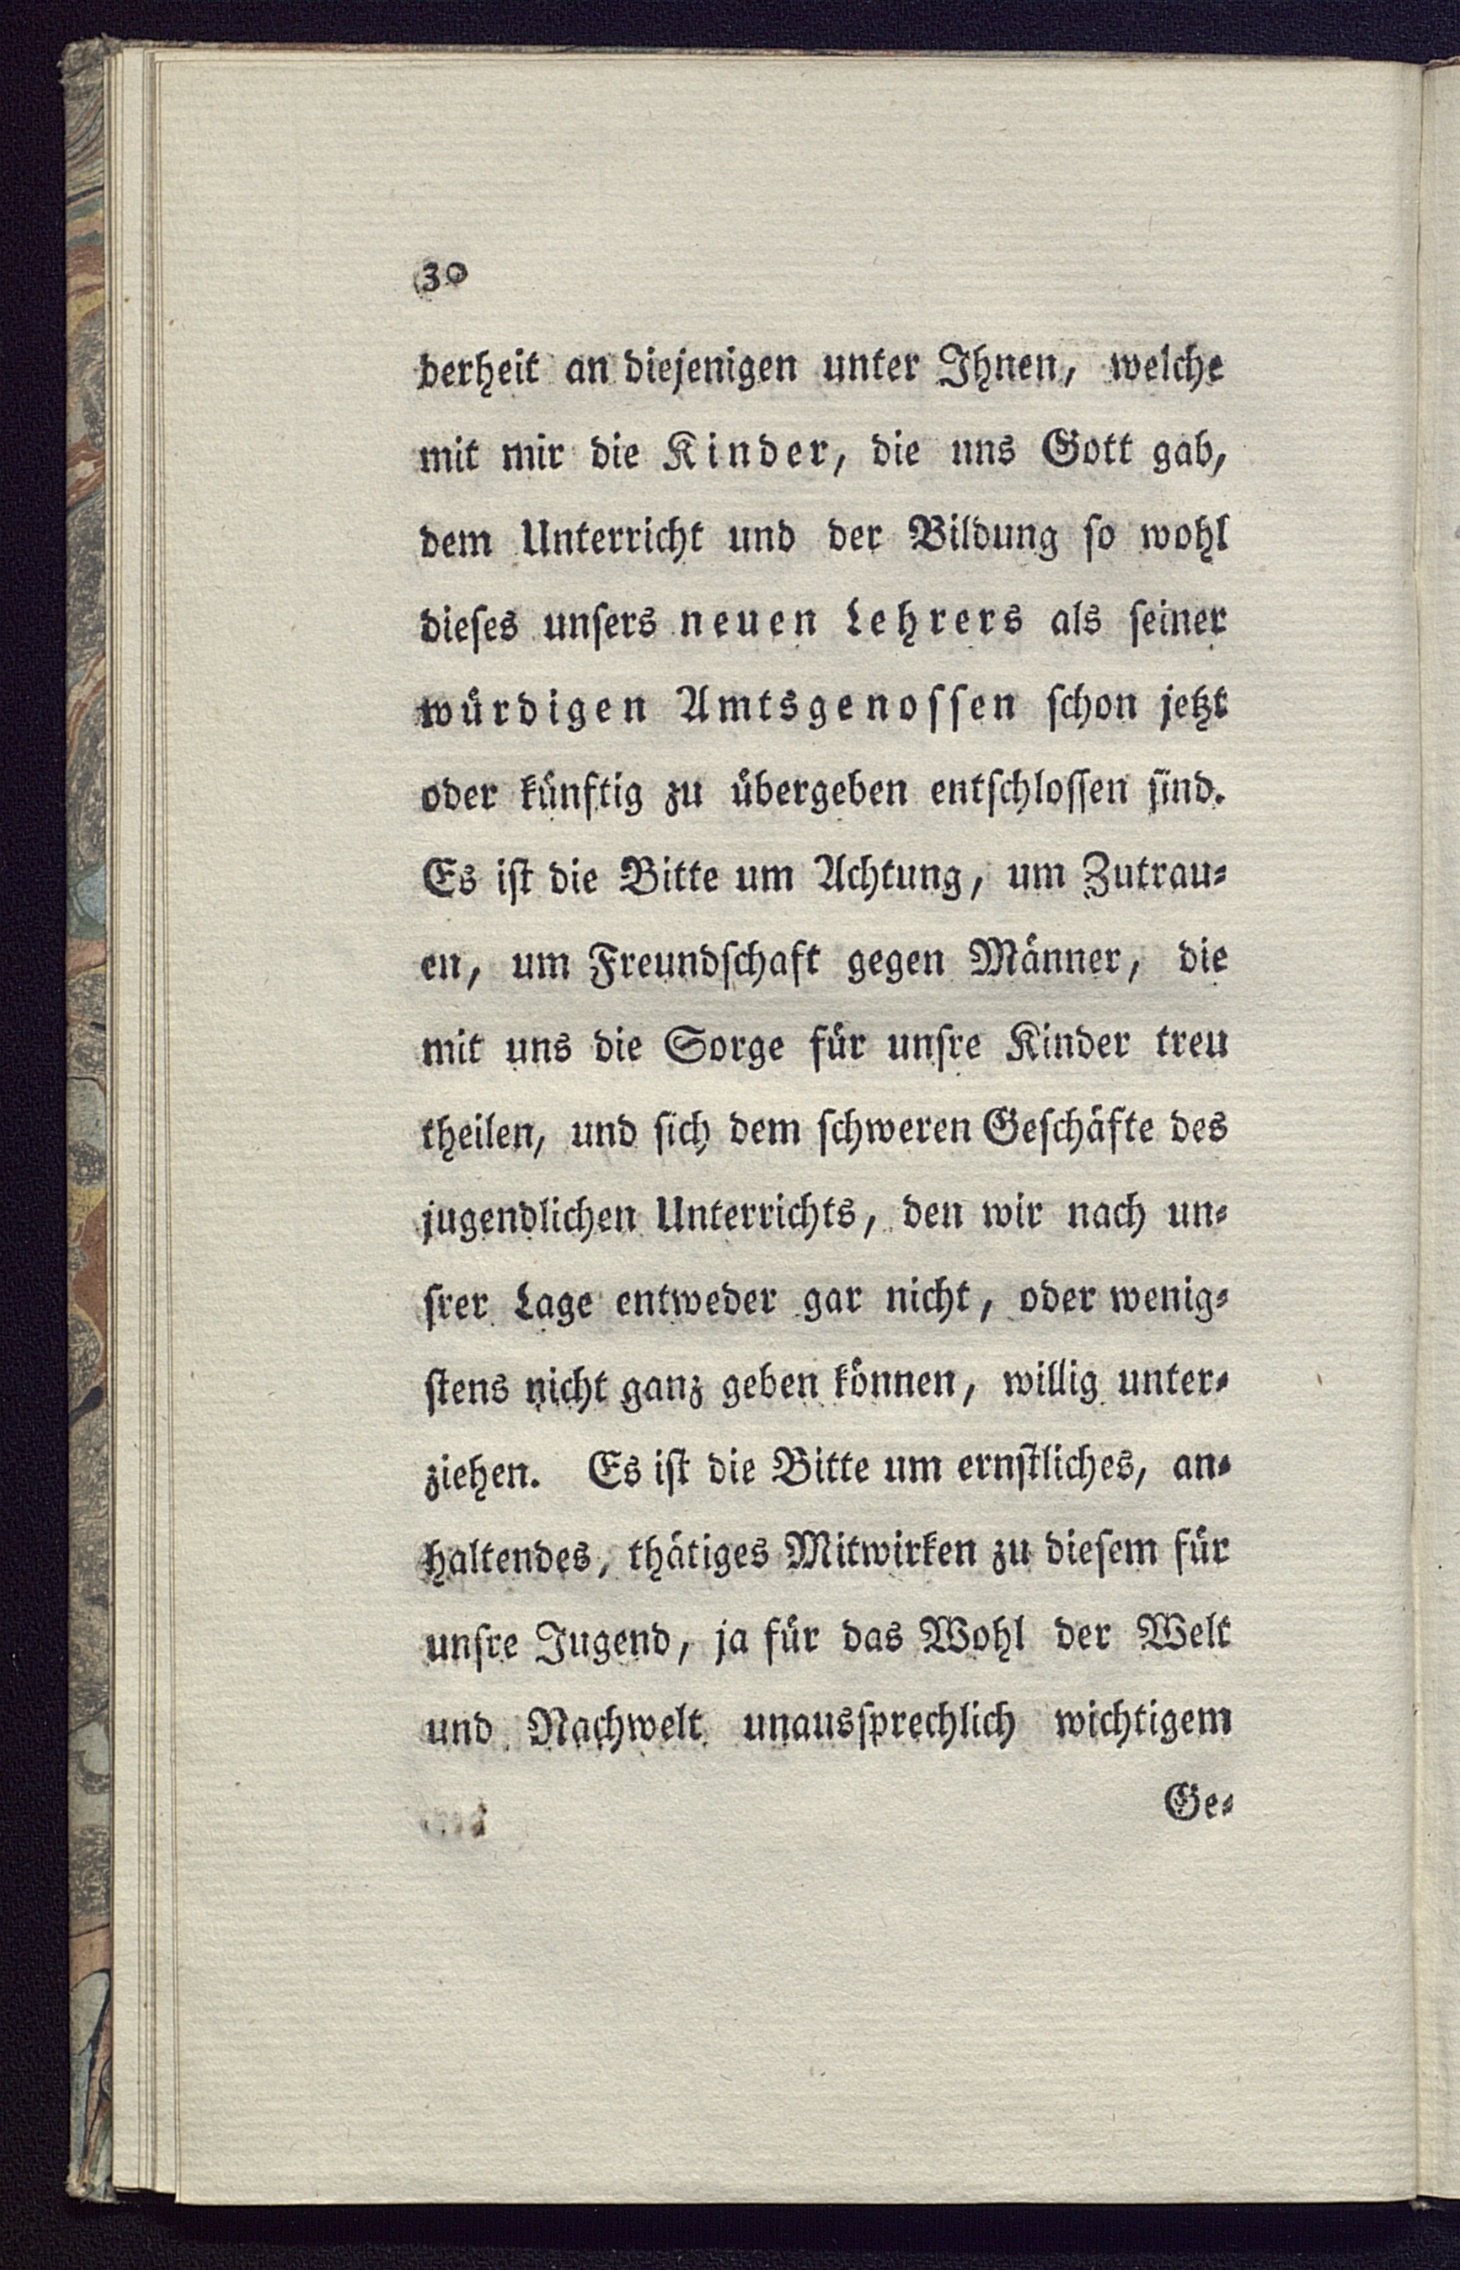 30
derheit an diejenigen unter Ihnen, welche
mit mir die Kinder, die uns Gott gab,
dem Unterricht und der Bildung so wohl
dieſes unſers neuen Lehrers als ſeiner
wuͤrdigen Amtsgenoſſen ſchon jetzt
oder kuͤnftig zu uͤbergeben entſchloſſen ſind.
Es iſt die Bitte um Achtung, um Zutrau⸗
en, um Freundſchaft gegen Maͤnner, die
mit uns die Sorge fuͤr unſre Kinder treu
theilen, und ſich dem ſchweren Geſchaͤfte des
jugendlichen Unterrichts, den wir nach un⸗
ſrer Lage entweder gar nicht, oder wenig⸗
ſtens nicht ganz geben koͤnnen, willig unter⸗
ziehen. Es iſt die Bitte um ernſtliches, an⸗
haltendes, thaͤtiges Mitwirken zu dieſem fuͤr
unſre Jugend, ja fuͤr das Wohl der Welt
und Nachwelt unausſprechlich wichtigem
Ge⸗